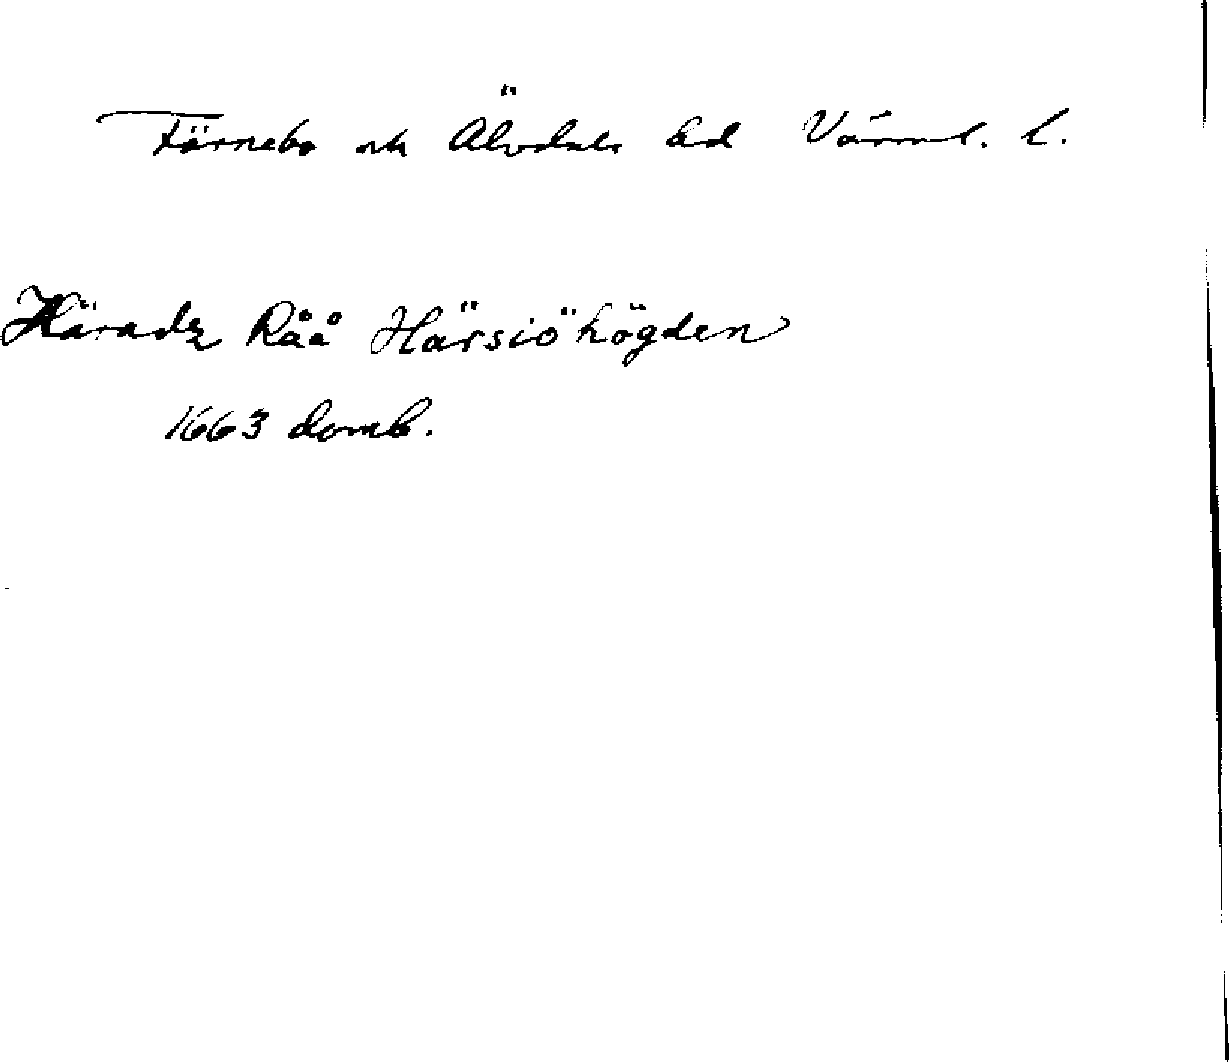 Färnebo och Älvdals hd Värml. l.
Häradz Råå Härsiöhögden
1663 domb.